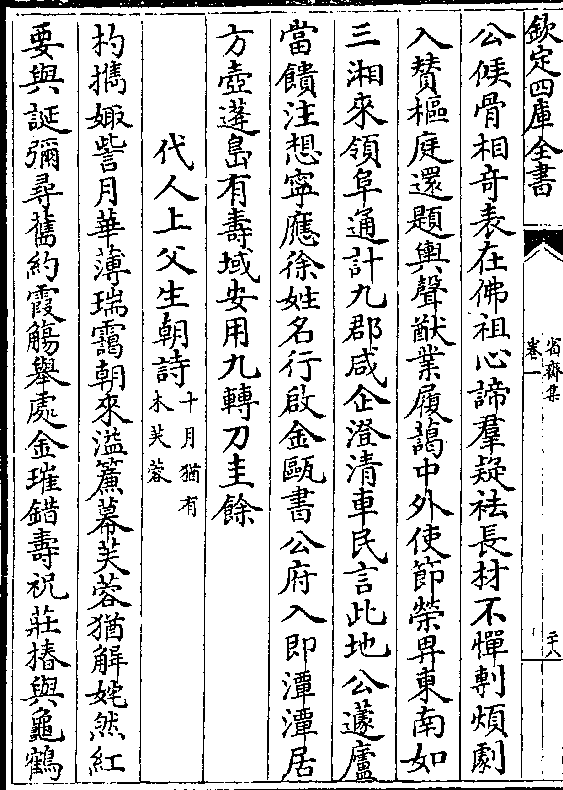 欽定四庫全書
省齋集
卷一
二十八
公候骨相奇表在佛祖心諦羣疑祛長材不憚剸煩劇
入贊樞庭還題輿聲猷業履藹中外使節榮畀東南如
三湘來領阜通計九郡咸企澄清車民言此地公蘧廬
當饋注想寧應徐姓名行啟金甌書公府入即潭潭居
方壺蓬島有壽域安用九轉刀圭餘
代人上父生朝詩十月猶有木芙蓉
杓攜娵訾月華薄瑞靄朝來溢簾幕芙蓉猶解姹然紅
要與誕彌尋舊約霞觴舉處金璀錯壽祝莊椿與龜鶴